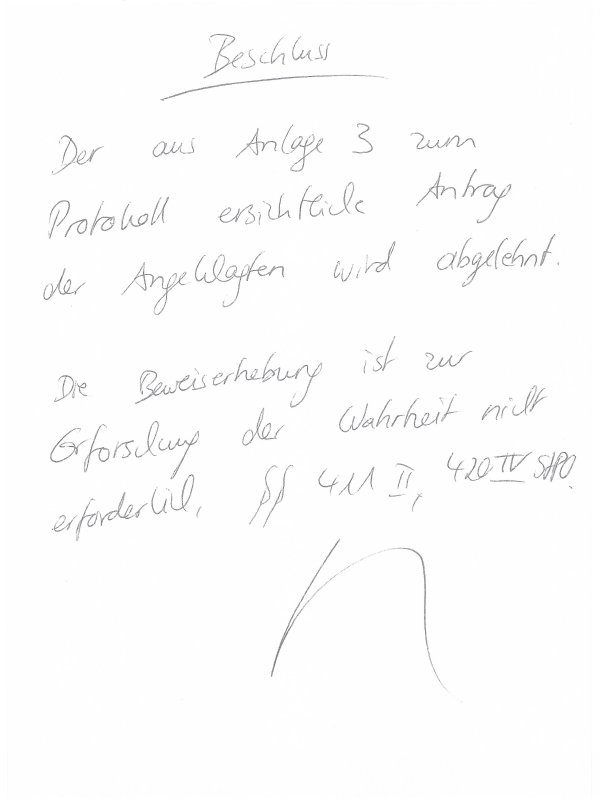 Beschluss
Der aus Anlage 3 zum
Protokoll ersichtliche Antrag
der Angeklagten wird abgelehnt.
Die Beweiserhebung ist zur
Erforschung der Wahrheit nicht
erforderlich, §§ 411 II, 420 IV StPO.